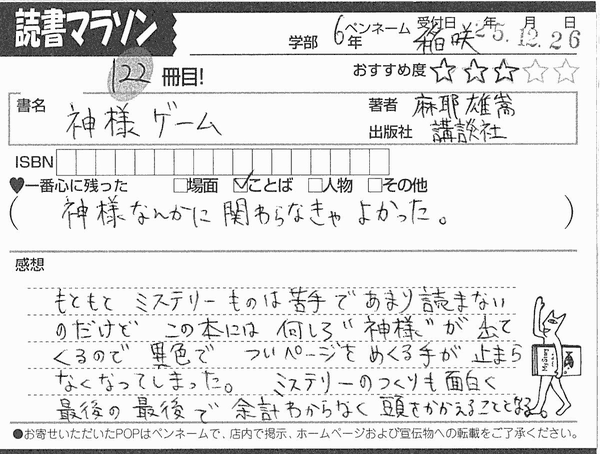 読書マラソン
学部 6年 ペンネーム 稲咲 受付日 年 月 日 25.12.26
122冊目!
おすすめ度 ★★★☆☆
書名 神様ゲーム
著者 麻耶雄嵩
出版社 講談社
ISBN
♥一番心に残った □場面 ☑ことば □人物 □その他
(神様なんかに関わらなきゃよかった。)
感想
もともと ミステリーものは苦手であまり読まない
のだけど この本には 何しろ"神様"が出て
くるので 異色で ついページをめくる手が止まら
なくなってしまった。 ミステリーのつくりも面白く
最後の最後で 余計わからなく 頭をかかえることとなる。
●お寄せいただいたPOPはペンネームで、店内で掲示、ホームページおよび宣伝物への転載をご了承ください。